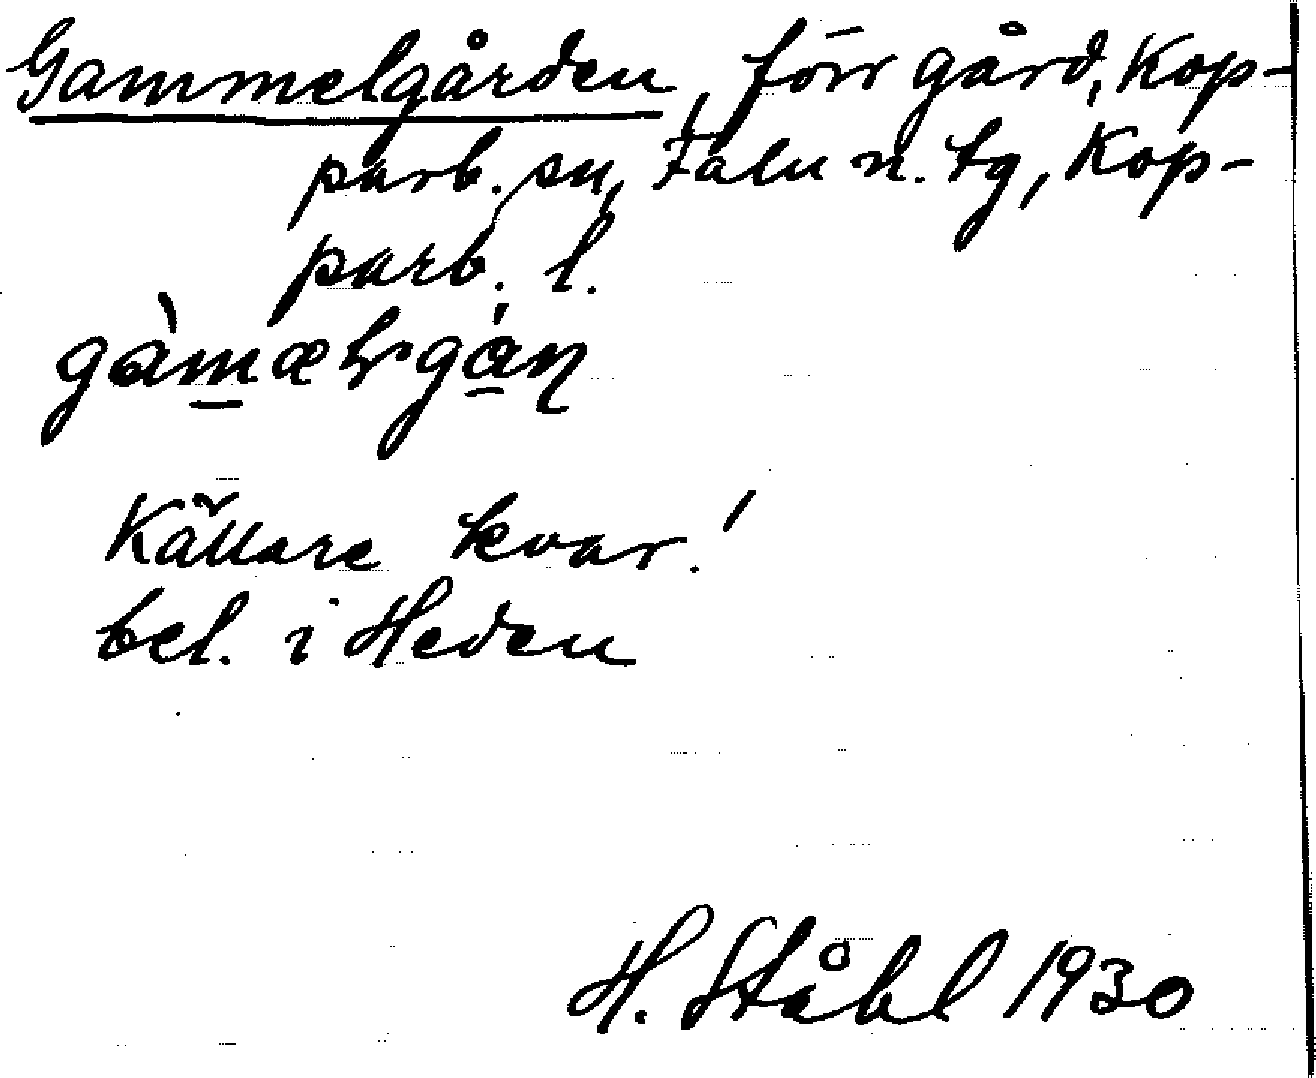 Gammelgården, förr gård, Kop-
parb. sn, Falu n. tg, Kop-
parb. l.
Källare kvar!
bel. i Heden
H. Ståhl 1930